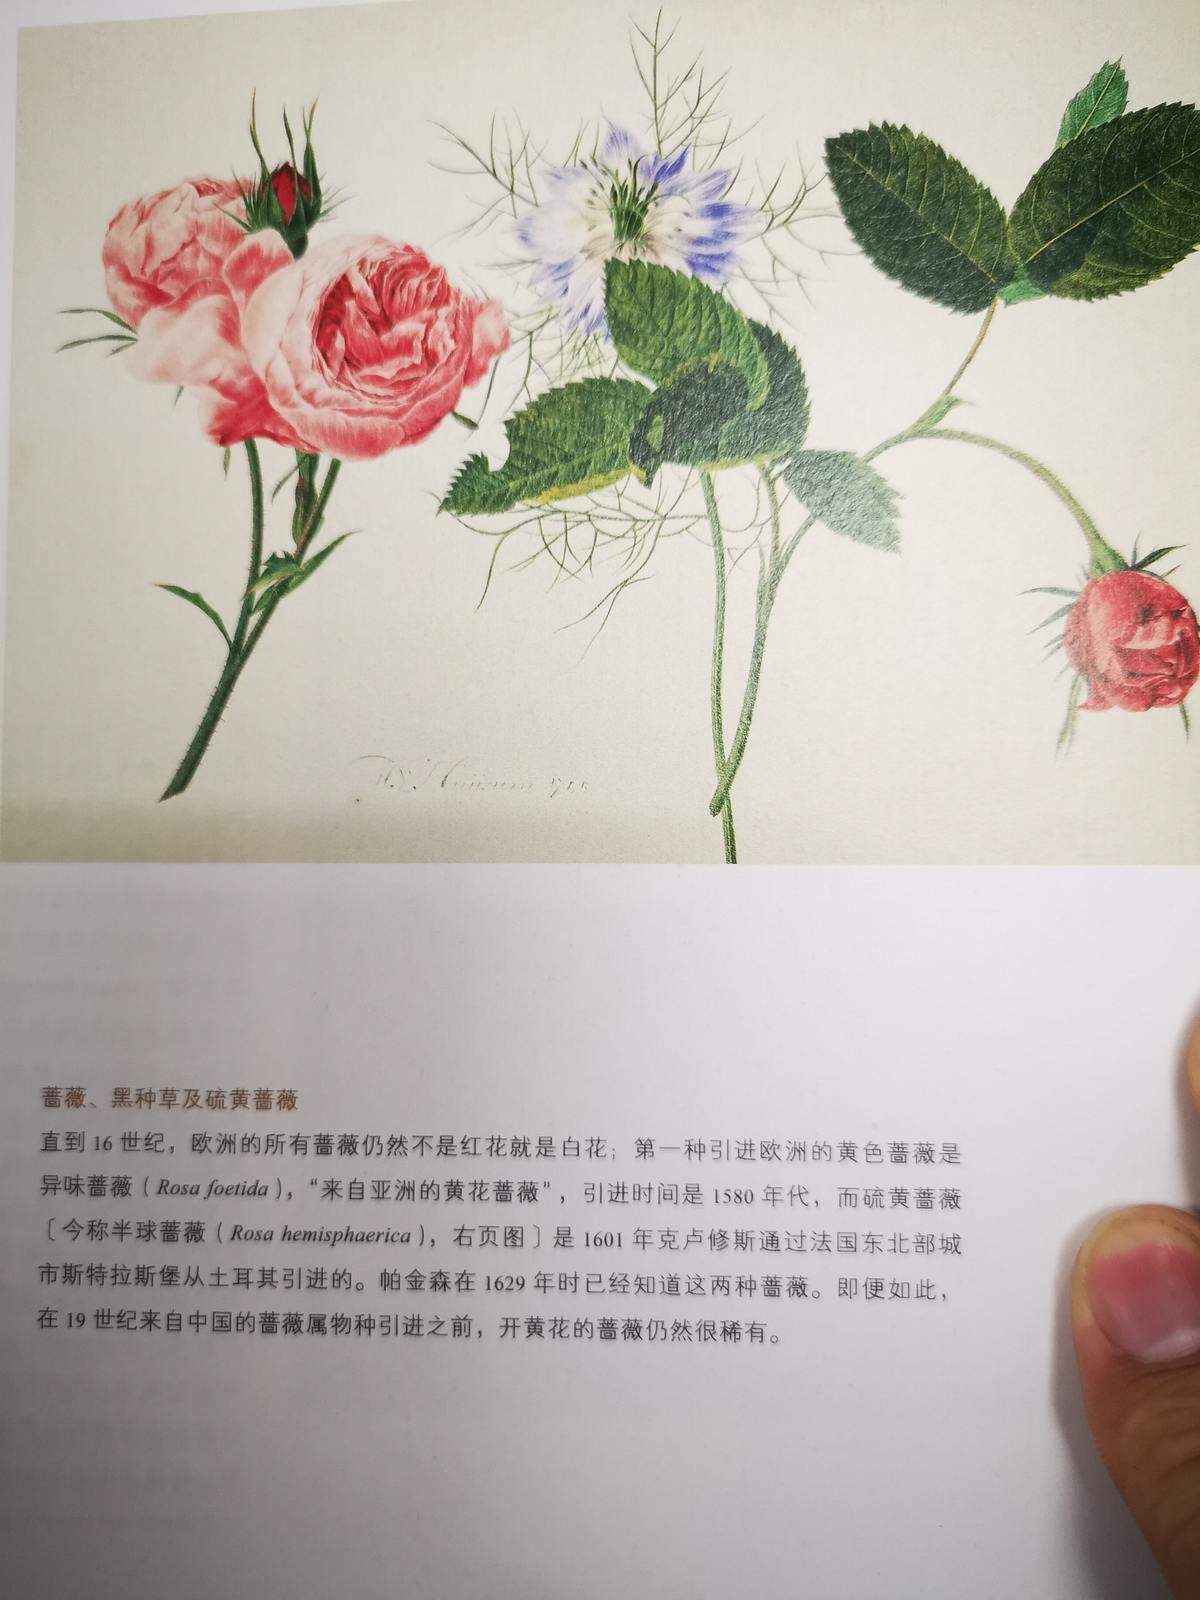 蔷薇、黑种草及硫黄蔷薇
直到 16 世纪，欧洲的所有蔷薇仍然不是红花就是白花；第一种引进欧洲的黄色蔷薇是
异味蔷薇（Rosa foetida），“来自亚洲的黄花蔷薇”，引进时间是 1580 年代，而硫黄蔷薇
〔今称半球蔷薇（Rosa hemisphaerica），右页图〕是 1601 年克卢修斯通过法国东北部城
市斯特拉斯堡从土耳其引进的。帕金森在 1629 年时已经知道这两种蔷薇。即便如此，
在 19 世纪来自中国的蔷薇属物种引进之前，开黄花的蔷薇仍然很稀有。